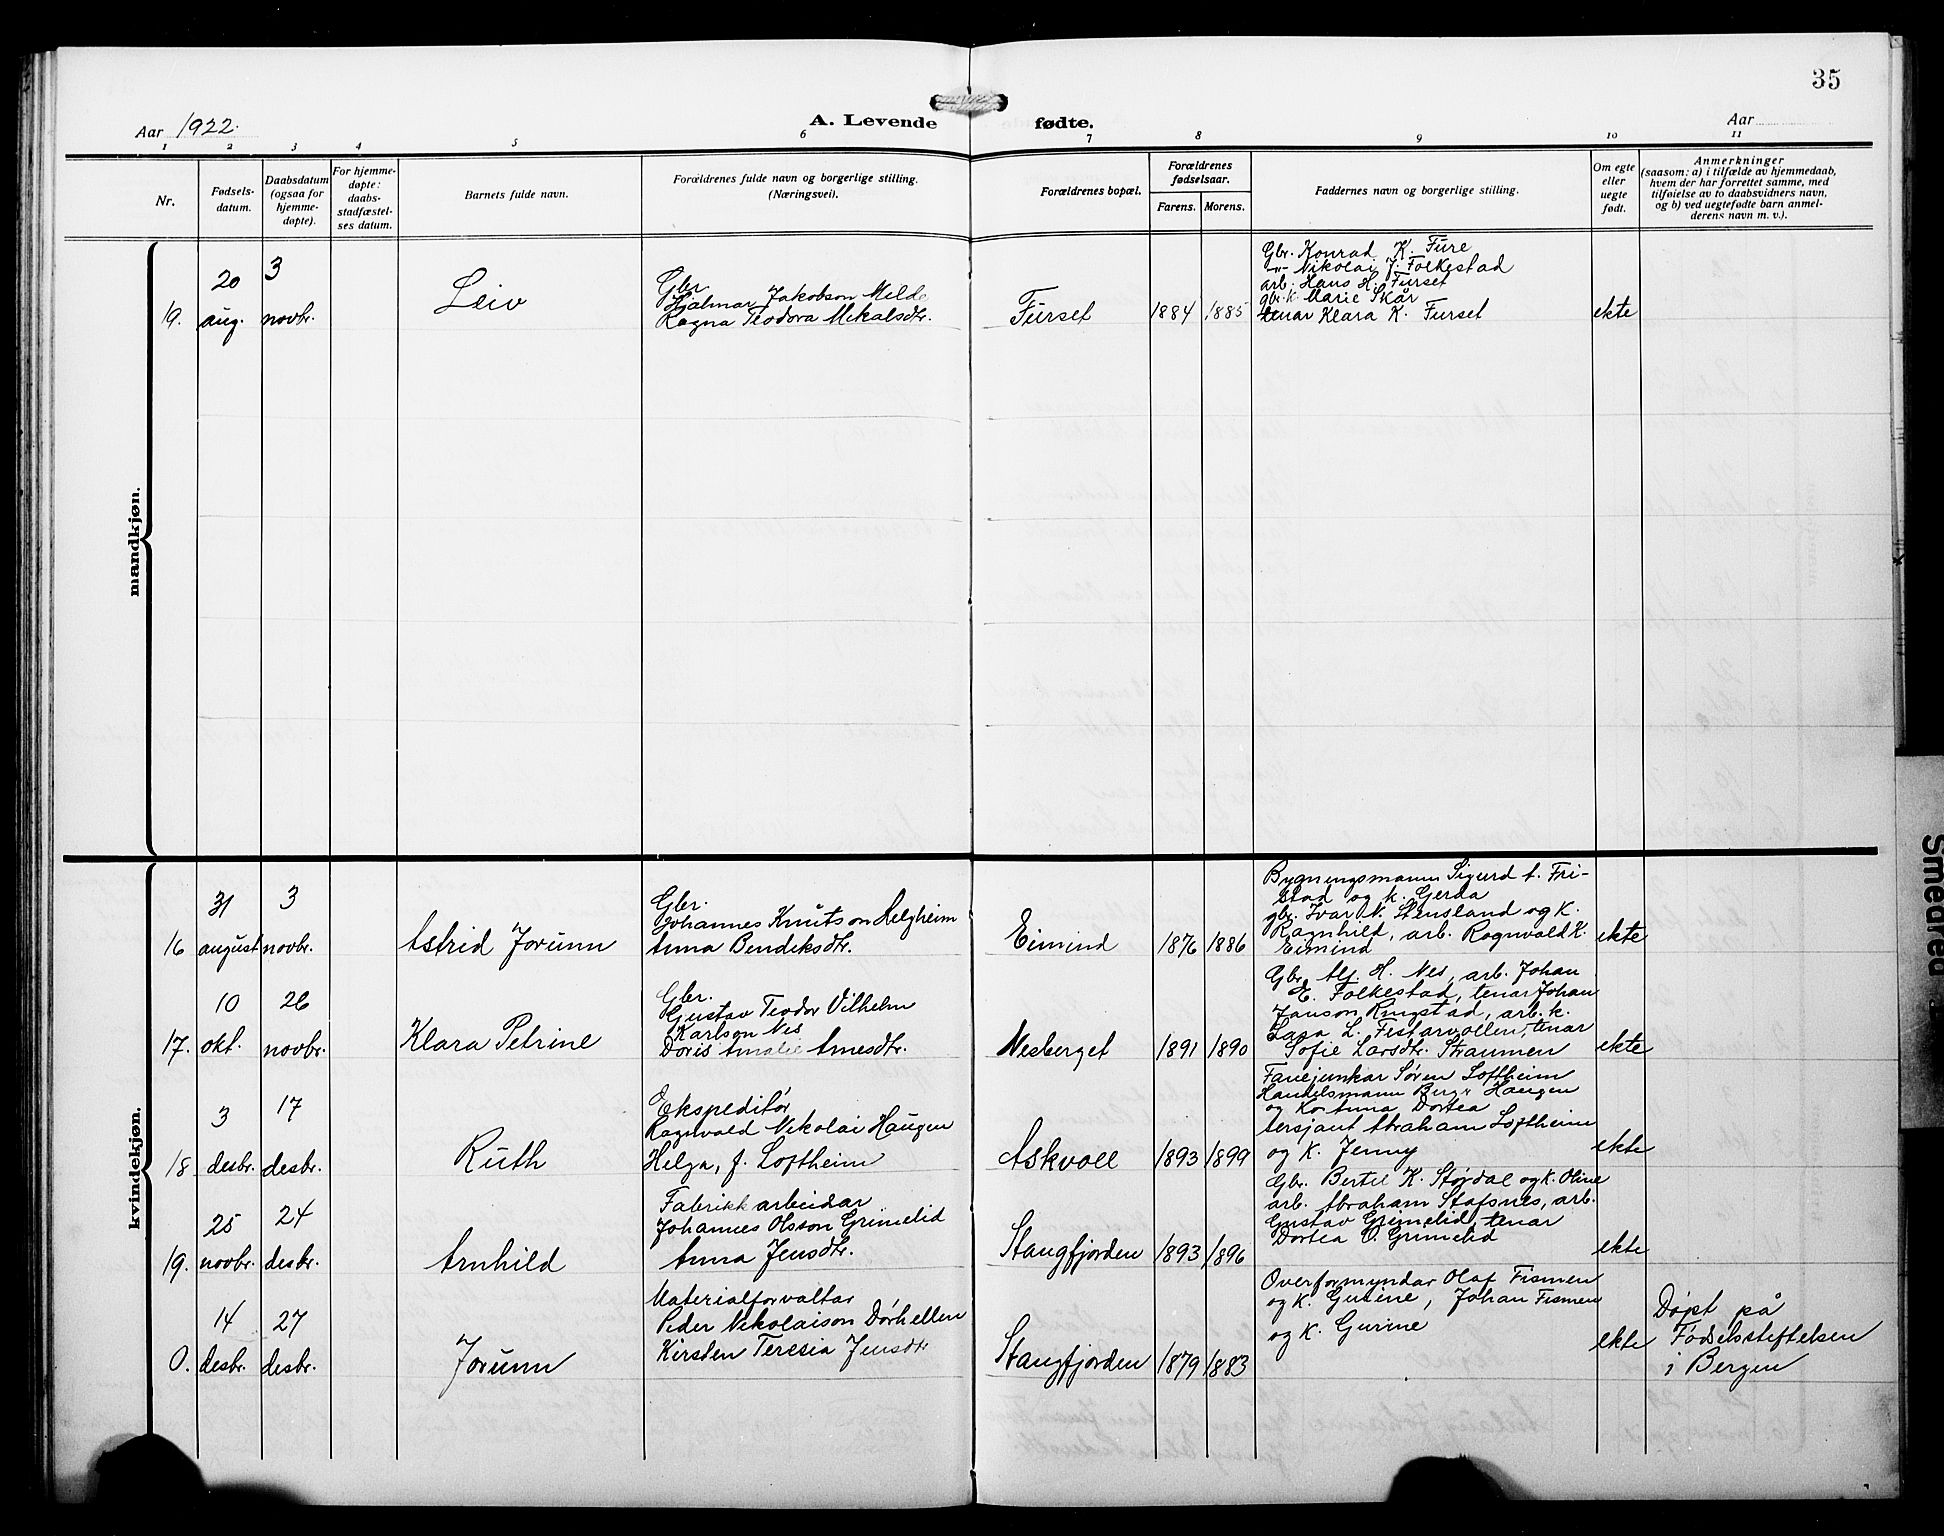 35
Aar 1922.
A. Levende fødte.
Aar
1 2 3 4 5 6 7 8 9 10 11
Nr.
Fødsels-
datum.
Daabsdatum
(ogsaa for
hjemme-
døpte).
For hjemme-
døpte:
daabs-
stadfæstel-
ses datum.
Barnets fulde navn.
Forældrenes fulde navn og borgerlige stilling.
(Næringsvei).
Forældrenes bopæl.
Forældrenes
fødselsaar.
Farens. Morens.
Faddernes navn og borgerlige stilling.
Om egte
eller
uegte
født.
Anmerkninger
(saasom: a) i tilfælde av hjemmedaab,
hvem der har forrettet samme, med
tilføielse av to daabsvidners navn,
og b) ved uegtefødte barn anmel-
derens navn m. v.).
mandkjøn.
19.
20
aug.
3
novbr.
Leiv
Gbr.
Hjalmar Jakobson Melde
Ragna Teodora Mikalsdtr.
Furset
1884
1885
Gbr. Konrad K. Fure
-"- Nikolai J. Folkestad
arb. Hans H. Furset
gbr. k. Marie Skår
tenar Klara K. Furset
ekte
kvindekjøn.
16
31
august
3
novbr.
Astrid Jorunn
Gbr.
Johannes Knutson Helgheim
Anna Bendiksdtr.
Eimind
1876
1886
Bygningsmann Sigurd A. Fri-
stad og k. Gerda
gbr. Ivar N. Stensland og k.
Ragnhild, arb. Rognvald K.
Eimind
ekte
17.
10
okt.
26
novbr.
Klara Petrine
Gbr.
Gustav Teodor Vilhelm
Karlson Nes
Doris Amalie Arnesdtr.
Nesberget
1891
1890
Gbr. Alf. H. Nes, arb. Johan
E. Folkestad, tenar Johan
Janson Ringstad, arb. k.
L. Fistarvollen, tenar
Sofie Larsdtr. Straumen
ekte
18
3
desbr.
17
desbr.
Ruth
Ekspeditør
Ragnvald Nikolai Haugen
Helga, f. Loftheim
Askvoll
1893
1899
Fanejunkar Søren Loftheim
Handelsmann Haugen
og k. Anna Dortea
sersjant Abraham Loftheim
og k. Jenny
ekte
19.
25
novbr.
24
desbr.
Arnhild
Fabrikkarbeidar
Johannes Olsson Grimelid
Anna Jensdtr.
Stangfjorden
1893
1896
Gbr. Bertel K. Størdal og k. Oline
arb. Abraham Stafsnes, arb.
Gustav Grimelid, tenar
Dortea O. Grimelid
ekte
0.
14
desbr.
27
desbr.
Jorunn
Materialforvaltar
Peder Nikolaison Dørhellen
Kirsten Teresia Jensdtr
Stangfjorden
1879
1883
Overformyndar Olaf Fismen
og k. Gurine, Johan Fismen
og k. Gurine
ekte
Døpt på
Fødselsstiftelsen
i Bergen
Smedred